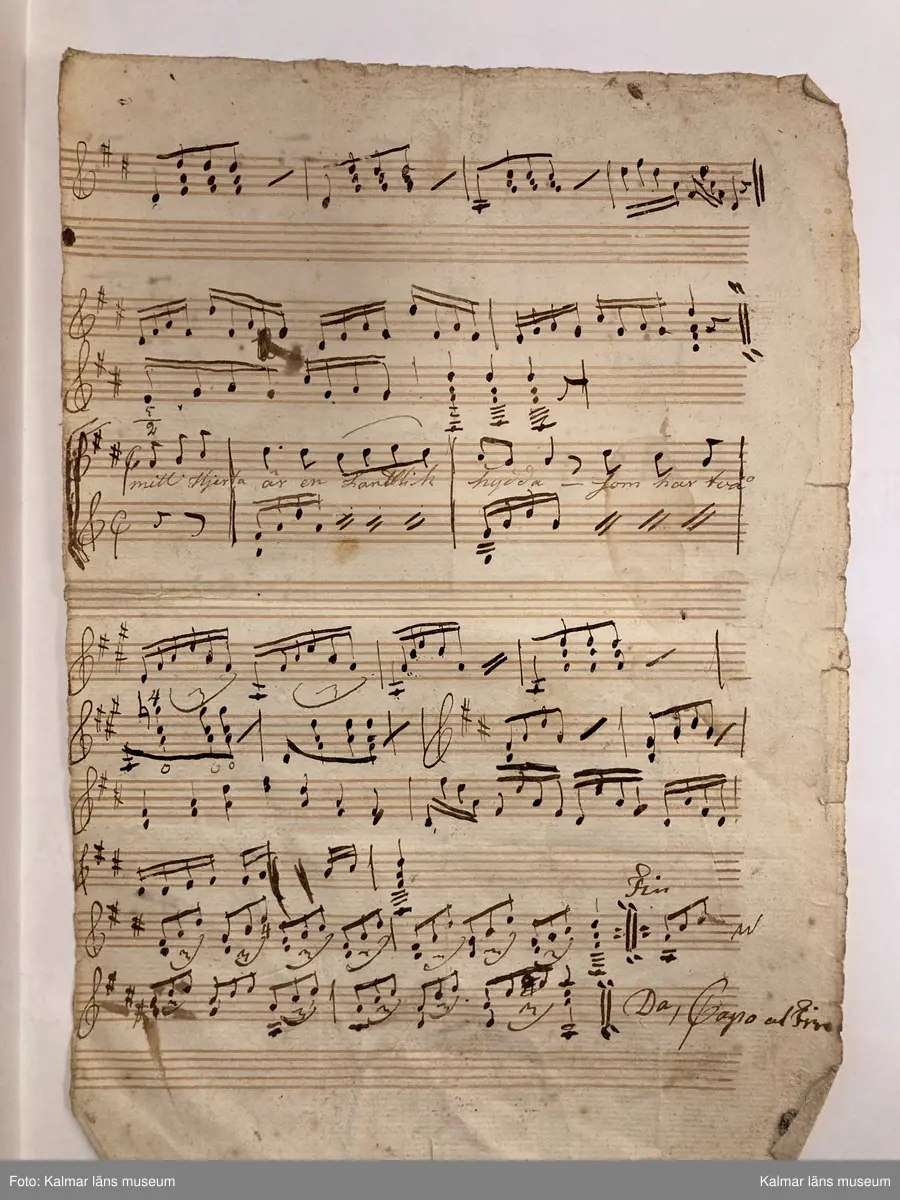 5
2
mitt Hjerta är en Landtlich hydda – som har två
3 3
4
Fin
3 3 3 3 3 3 3
3 3 3 3
Da, Capo al Fin
Foto: Kalmar läns museum
Kalmar läns museum